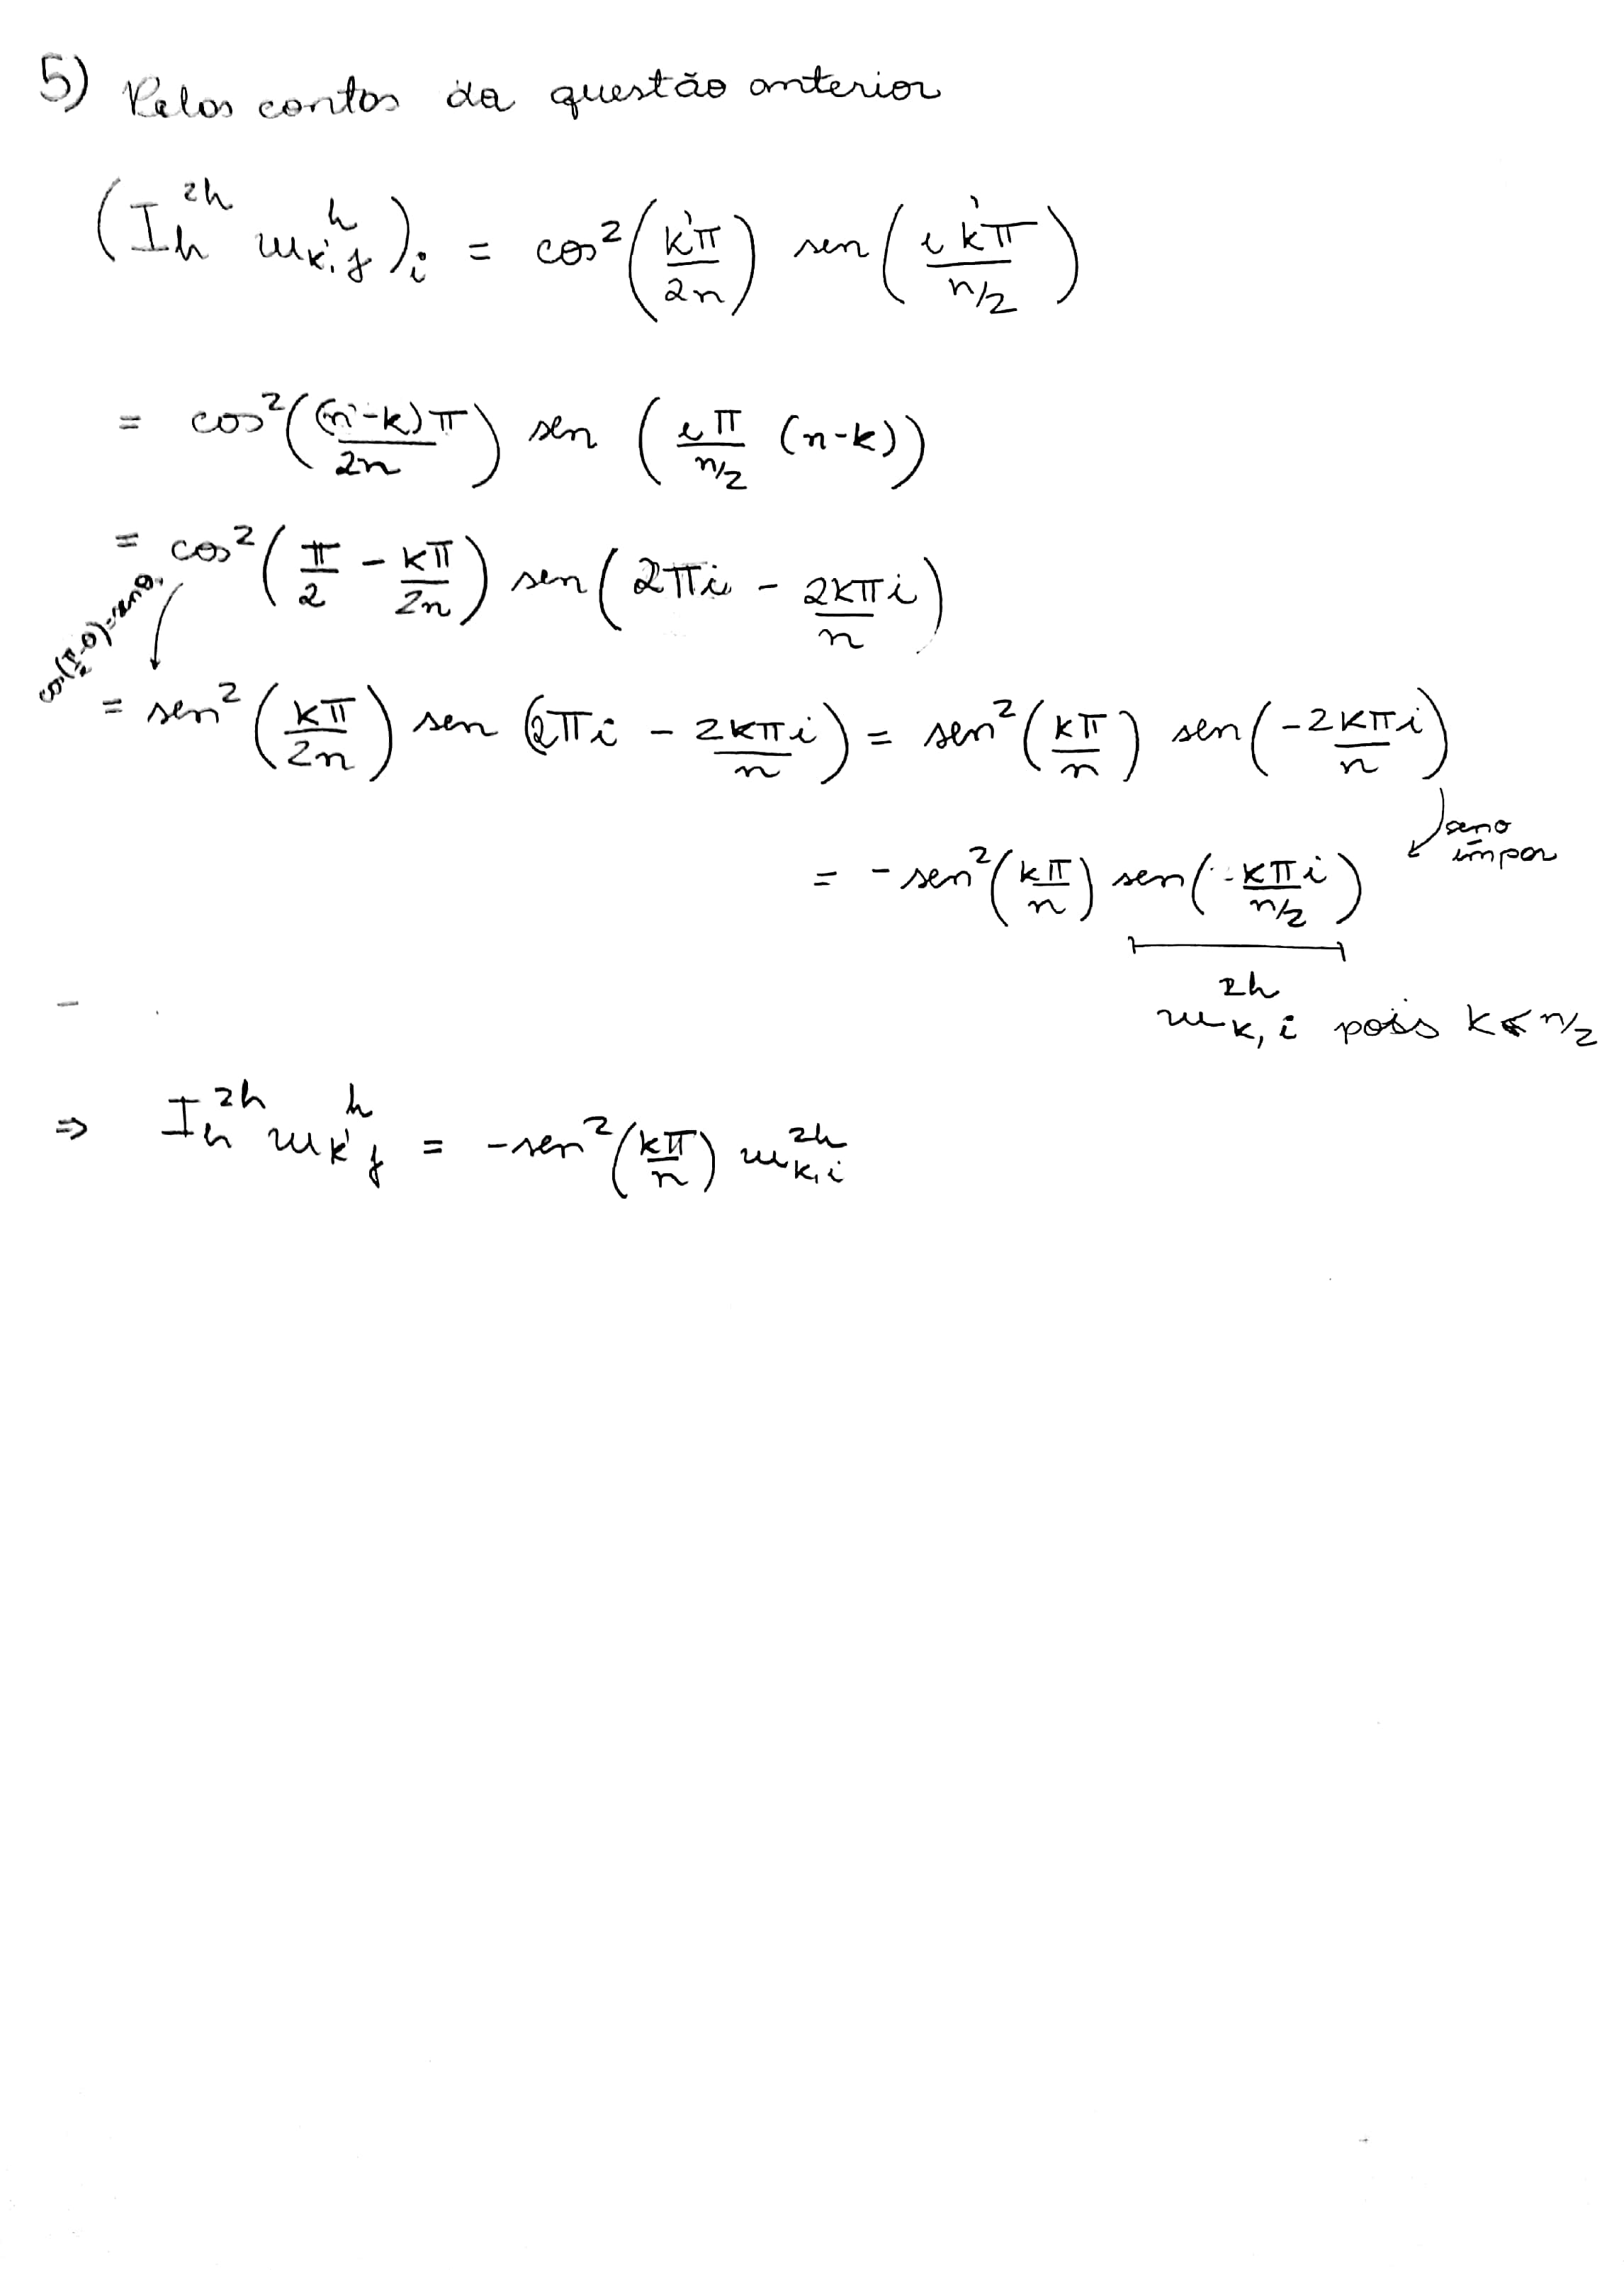 5) Pelos contas da questão anterior
(I_h^{2h} w_{k',j}^h)_i = cos²(k'π/2n) sen(i k'π/(n/2))
= cos²((n-k)π/2n) sen(iπ/(n/2) (n-k))
= cos²(π/2 - kπ/2n) sen(2πi - 2kπi/n)
cos(π/2-θ)=senθ.
= sen²(kπ/2n) sen(2πi - 2kπi/n) = sen²(kπ/n) sen(-2kπi/n)
seno ímpar
= -sen²(kπ/n) sen(-kπi/(n/2))
w_{k,i}^{2h} pois k<n/2
⇒ I_h^{2h} w_{k'j}^h = -sen²(kπ/n) w_{k,i}^{2h}